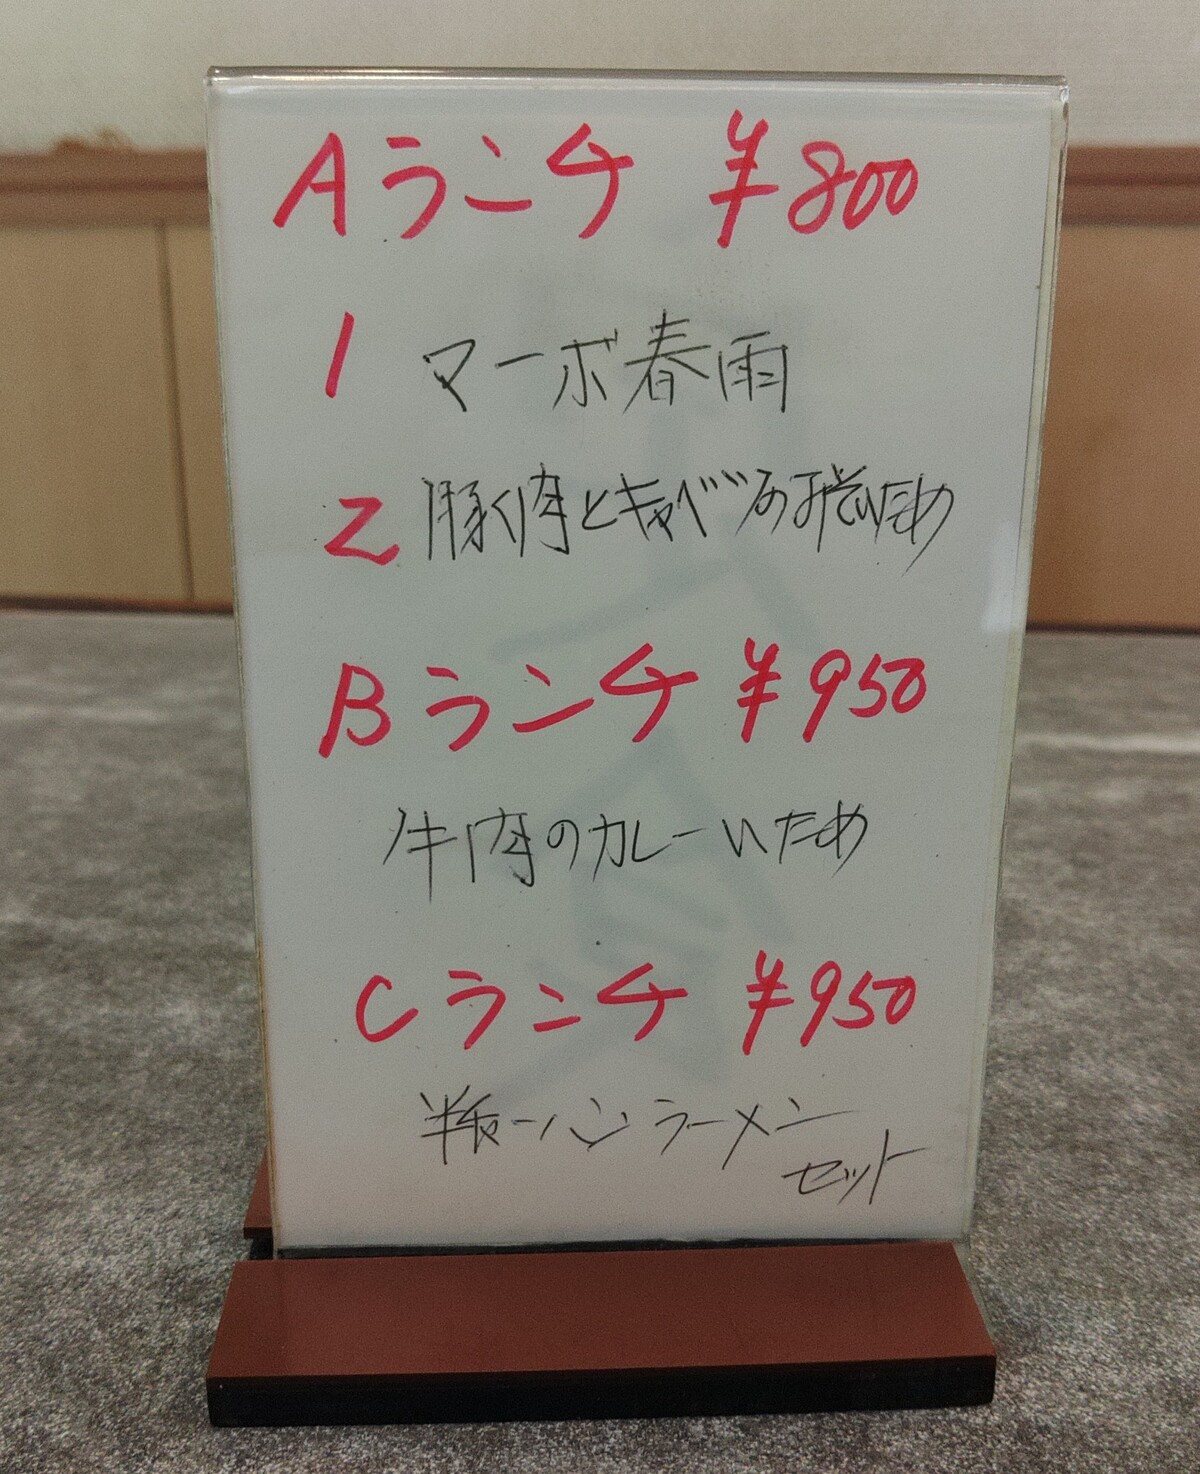 Aランチ ¥800
1 マーボ春雨
2 豚肉とキャベツのみそいため
Bランチ ¥950
牛肉のカレーいため
Cランチ ¥950
半チャーハンラーメン
セット